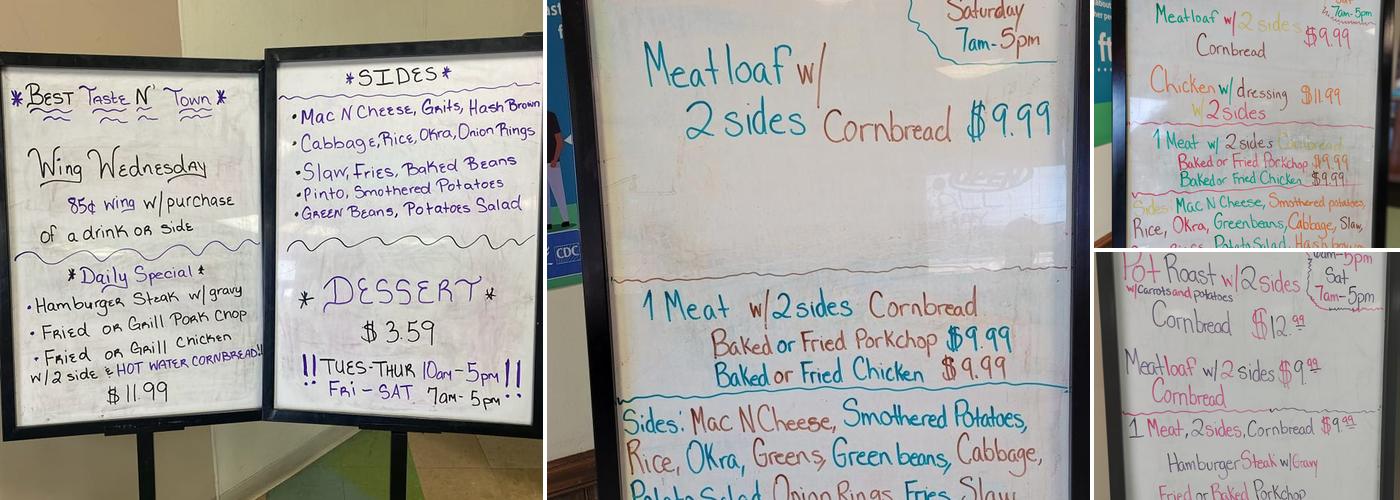 *BEST TasTe N' Town*
Wing Wednesday
85¢ wing w/purchase
of a drink OR side
*Daily Special*
•Hamburger Steak w/gravy
• Fried OR Grill Pork Chop
• Fried or Grill Chicken
w/2 side & HOT WATER CORNBREAD!!
$11.99
*SIDES*
•Mac N Cheese, Grits, Hash Brown
•Cabbage, Rice, Okra, Onion Rings
•Slaw, Fries, Baked Beans
•Pinto, Smothered Potatoes
•GREEN Beans, Potatoes Salad
* DESSERT *
$3.59
!! TUES-THUR 10am-5pm !!
FRI-SAT 7am-5pm
Saturday
7am-5pm
Meatloaf w/
2 sides Cornbread $9.99
CDC
1 Meat w/2 sides Cornbread
Baked or Fried Porkchop $9.99
Baked or Fried Chicken $9.99
Sides: Mac N Cheese, Smothered Potatoes,
Rice, Okra, Greens, Green beans, Cabbage,
Potato Salad, Onion Rings, Fries, Slaw
7am-5pm
Meatloaf w/2 sides $9.99
Cornbread
Chicken w/dressing $11.99
w/ 2 sides
1 Meat w/ 2 sides Cornbread
Baked or Fried Porkchop $9.99
Baked or Fried Chicken $9.99
Sides: Mac N Cheese, Smothered potatoes,
Rice, Okra, Greenbeans, Cabbage, Slaw,
Potato Salad, Hashbrown
Pot Roast w/2 sides
w/Carrots and potatoes
Sat
7am-5pm
Cornbread $12.99
Meatloaf w/2 sides $9.99
Cornbread
1 Meat, 2 sides, Cornbread $9.99
Hamburger Steak w/Gravy
Fried or Baked Porkchop